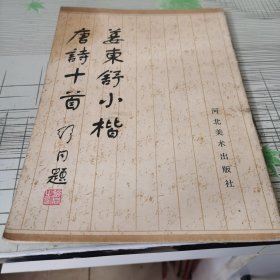 姜東舒小楷
唐詩十首
题
河北美术出版社